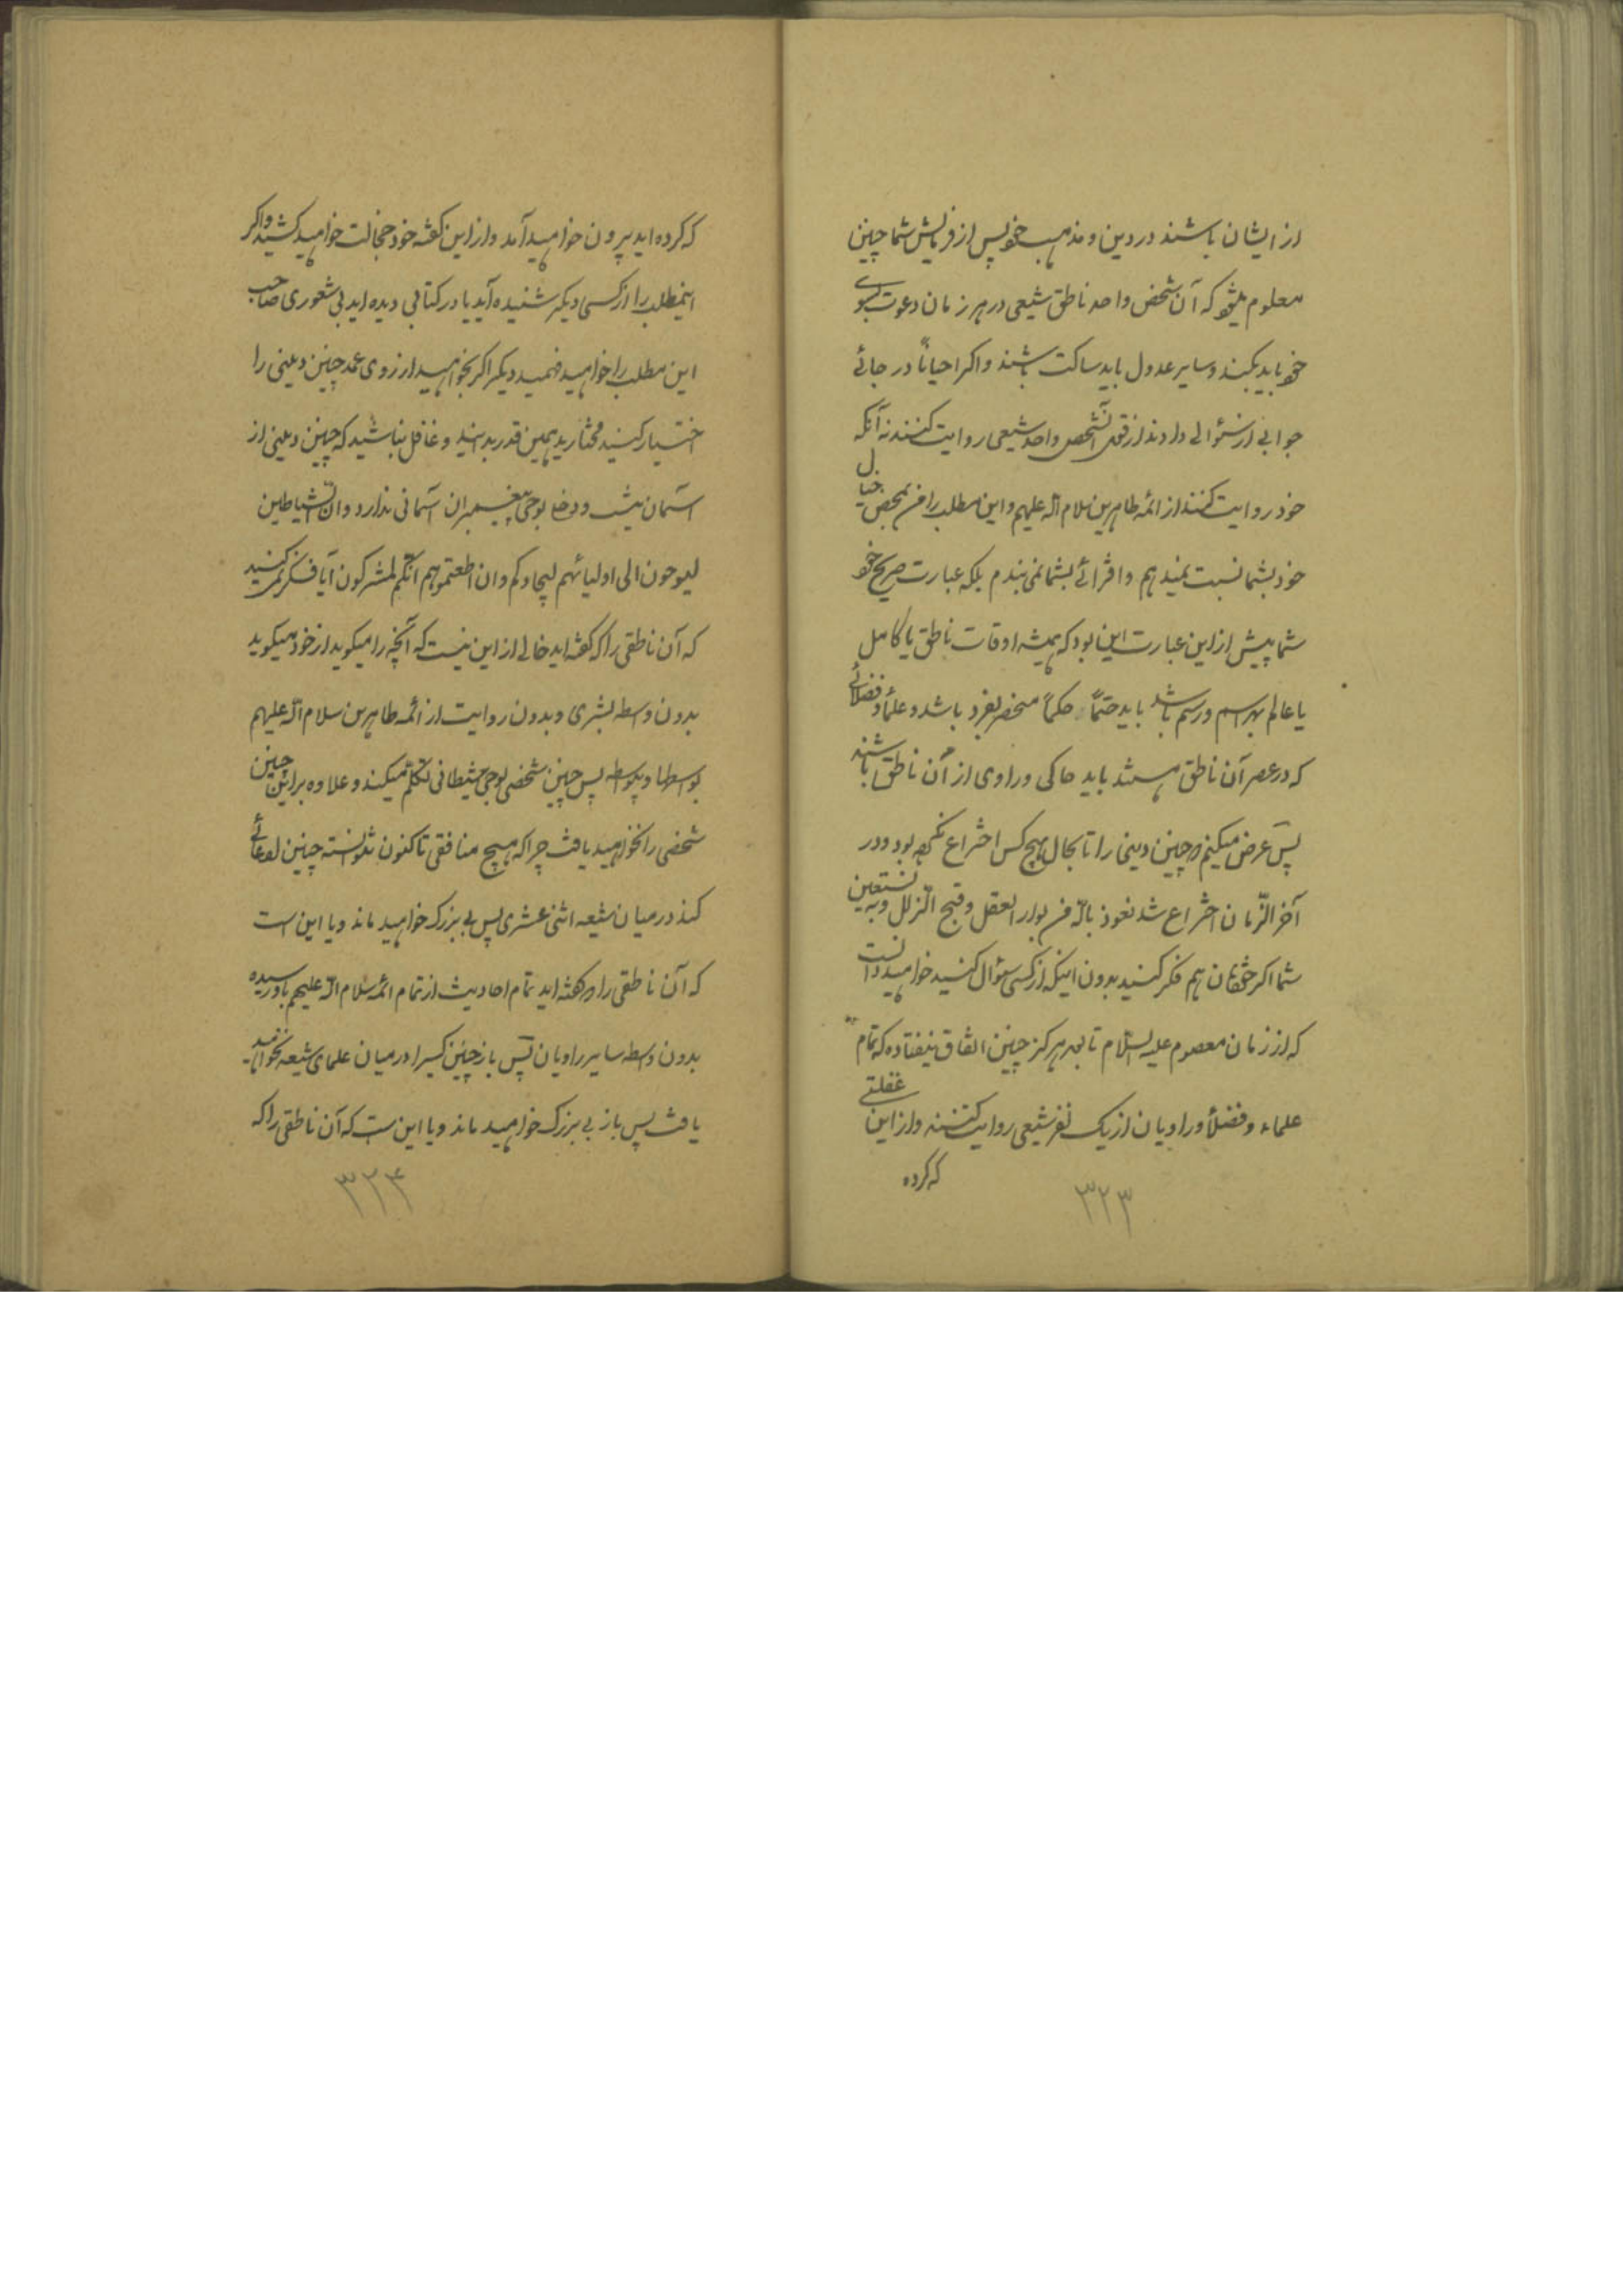 از ایشان باشند در دین و مذهب خود پس از فرمایش شما چنین
معلوم میشود که آن شخص واحد ناطق شیعی در هر زمان دعوت بسوی
خود باید بکند و سایر عدول باید ساکت باشند و اگر احیاناً در جائی
جوابی از سئوالی دادند از قول آنشخص واحد شیعی روایت کنند نه آنکه
خود روایت کنند از ائمه طاهرین سلام الله علیهم و این مطلب را من بمحض خیال
خود بشما نسبت نمیدهم و افترائی بشما نمی بندم بلکه عبارت صریح خود
شما پیش از این عبارت این بود که همیشه اوقات ناطق یا کامل
یا عالم بهر اسم و رسم باشد باید حتماً حکماً منحصر بفرد باشد و علماء و فضلائی
که در عصر آن ناطق هستند باید حاکی و راوی از آن ناطق باشند
پس عرض میکنم که چنین دینی را تا بحال هیچ کس اختراع نکرده بود و در
آخر الزّمان اختراع شد نعوذ بالله من بوار العقل و قبح الزلل و به نستعین
شما اگر خودتان هم فکر کنید بدون اینکه از کسی سئوال کنید خواهید دانست
که از زمان معصوم علیه السّلام تا بحال هرگز چنین اتفاق نیفتاده که تمام
علماء و فضلاء و راویان از یک نفر شیعی روایت کنند و از این غفلتی
که کرده
۳۲۳
که کرده اید بیرون خواهید آمد و از این گفته خود خجالت خواهید کشید و اگر
اینمطلب را از کسی دیگر شنیده اید یا در کتابی دیده اید بی شعوری صاحب
این مطلب را خواهید فهمید دیگر اگر بخواهید از روی عمد چنین دینی را
اختیار کنید مختارید همین قدر بدانید و غافل نباشید که چنین دینی از
آسمان نیست و دخلی بوحی پیغمبران آسمانی ندارد و انّ الشیاطین
لیوحون الی اولیائهم لیجادلوکم و ان اطعتموهم انّکم لمشرکون آیا فکر نمی کنید
که آن ناطقی را که گفته اید خالی از این نیست که آنچه را میگوید از خود میگوید
بدون واسطه بشری و بدون روایت از ائمه طاهرین سلام الله علیهم
بواسطه و بیواسطه پس چنین شخصی بوحی شیطانی تکلّم میکند و علاوه بر این چنین
شخصی را نخواهید یافت چرا که هیچ منافقی تاکنون نتوانسته چنین ادعائی
کند در میان شیعه اثنی عشری پس بی بزرگ خواهید ماند و یا این است
که آن ناطقی را که گفته اید تمام احادیث از تمام ائمه سلام الله علیهم باو رسیده
بدون واسطه سایر راویان پس باز چنین کسی را در میان علمای شیعه نخواهید
یافت پس باز بی بزرگ خواهید ماند و یا این است که آن ناطقی را که
۳۲۴